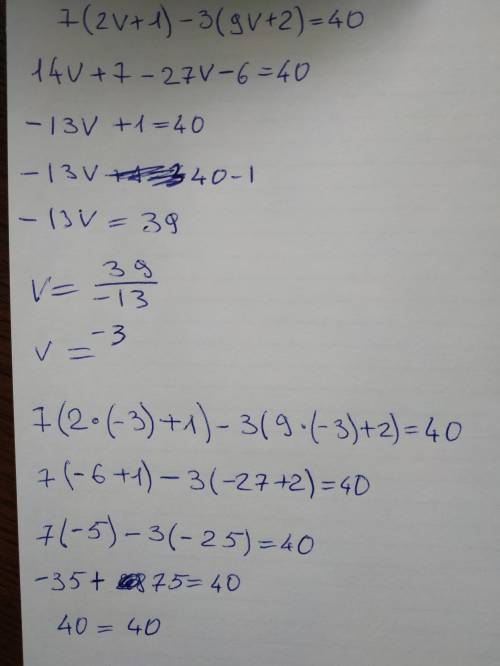 7(2v+1)-3(9v+2)=40
14v+7-27v-6=40
-13v+1=40
-13v 40-1
-13v=39
v=39/-13
v=-3
7(2·(-3)+1)-3(9·(-3)+2)=40
7(-6+1)-3(-27+2)=40
7(-5)-3(-25)=40
-35+75=40
40=40